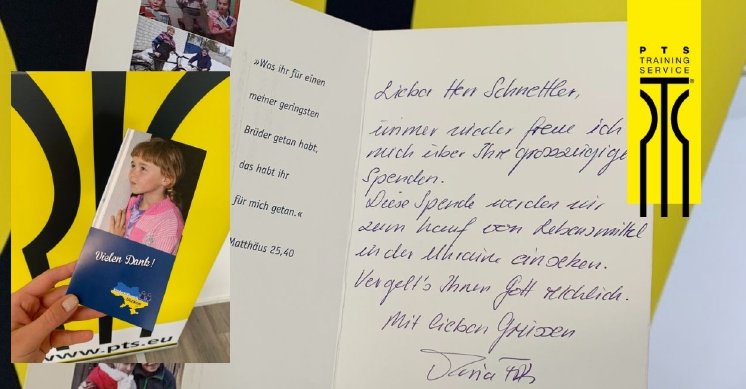 »Was ihr für einen
meiner geringsten
Brüder getan habt,
das habt ihr
für mich getan.«
Matthäus 25,40
Lieber Herr Schnettler,
immer wieder freue ich
mich über Ihre grosszügige
Spenden.
Diese Spende werden wir
zum kauf von Lebensmittel
in der Ukraine einsetzen.
Vergelt's Ihnen Gott reichlich.
Mit lieben Grüssen
PTS
TRAINING
SERVICE
Vielen Dank!
www.pts.eu